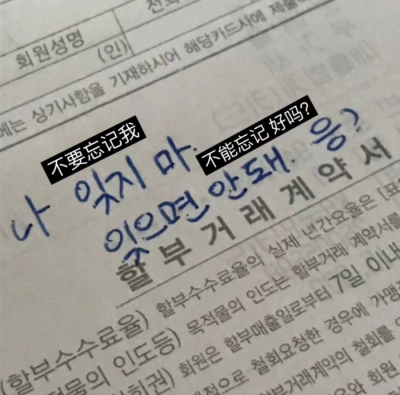 전화
회원성명
(인)
에는 상기사항을 기재하시어 해당카드사에 제출
不要忘记我
나 잊지 마.
不能忘记 好吗?
잊으면 안돼 응?
할부거래계약서
할부수수료율의 실제 년간요율은 [포
(할부수수료율)
목적물의 인도는 할부거래 계약서를
적물의 인도등)
회원은 할부매출일로부터 7일 이내
회권)
적으로 철회요청한 경우에 가맹
부거래계약의 철회를
와 회원